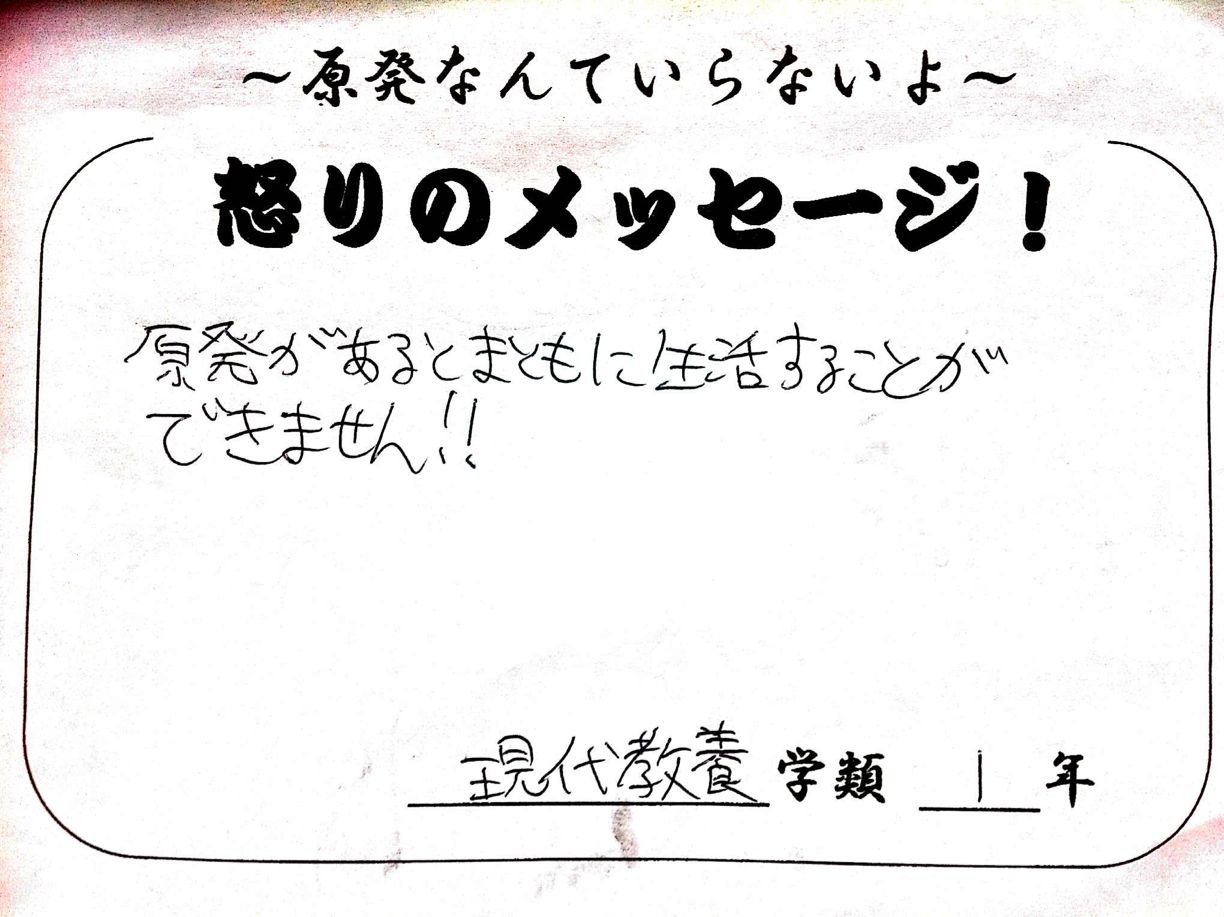 ～原発なんていらないよ～
怒りのメッセージ！
原発があるとまともに生活することが
できません!!
現代教養学類 1年